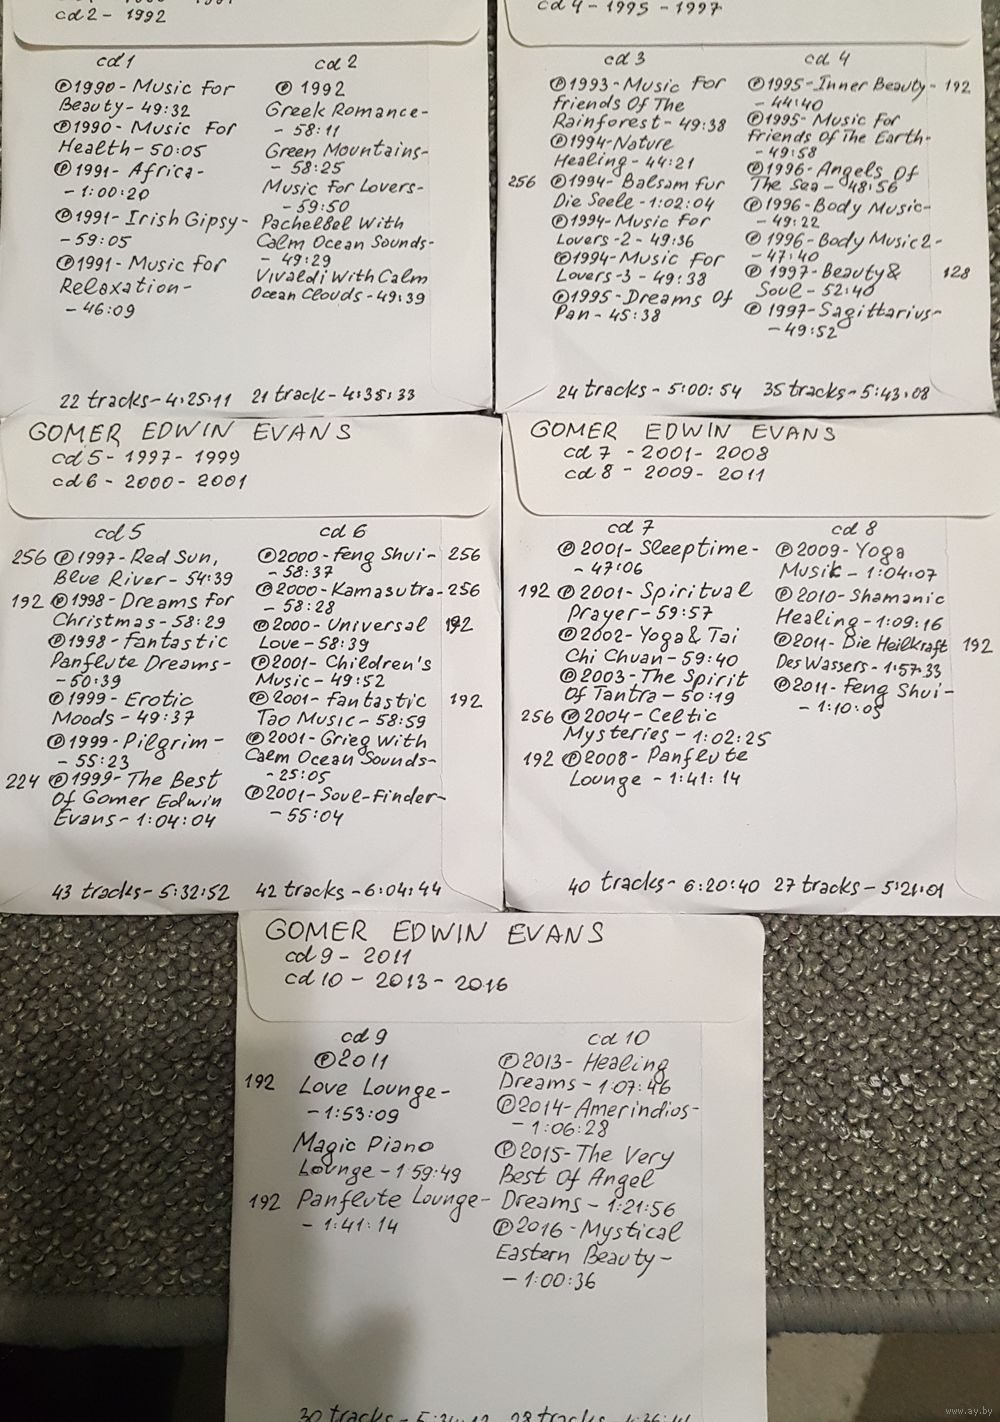 cd2 - 1992
cd 1
℗1990- Music For
Beauty - 49:32
℗1990- Music For
Health - 50:05
℗1991- Africa-
- 1:00:20
℗1991- Irish Gipsy-
- 59:05
℗1991- Music For
Relaxation-
- 46:09
22 tracks - 4:25:11
cd 2
℗ 1992
Greek Romance-
- 58:11
Green Mountains-
- 58:25
Music For Lovers-
- 59:50
Pachelbel With
Calm Ocean Sounds-
- 49:29
Vivaldi With Calm
Ocean Clouds - 49:39
21 track - 4:38:33
cd 4 - 1995 - 1997
cd 3
℗1993- Music For
Friends Of The
Rainforest - 49:38
℗1994- Nature
Healing - 44:21
256 ℗1994- Balsam Fur
Die Seele - 1:02:04
℗1994- Music For
Lovers-2 - 49:36
℗1994- Music For
Lovers-3 - 49:38
℗1995- Dreams Of
Pan - 45:38
24 tracks - 5:00:54
cd 4
℗1995- Inner Beauty- 192
- 44:40
℗1995- Music For
Friends Of The Earth-
- 49:58
℗1996- Angels Of
The Sea - 48:56
℗1996- Body Music-
- 49:22
℗1996- Body Music 2-
- 47:40
℗ 1997- Beauty& 128
Soul - 52:40
℗ 1997- Sagittarius-
- 49:52
35 tracks - 5:43:08
GOMER EDWIN EVANS
cd 5 - 1997 - 1999
cd 6 - 2000 - 2001
cd 5
256 ℗1997- Red Sun,
Blue River - 54:39
192 ℗1998- Dreams For
Christmas - 58:29
℗1998- Fantastic
Panflute Dreams-
- 50:39
℗1999- Erotic
Moods - 49:37
℗1999- Pilgrim-
- 55:23
224 ℗1999- The Best
Of Gomer Edwin
Evans - 1:04:04
43 tracks - 5:32:52
cd 6
℗2000- Feng Shui - 256
- 58:37
℗2000- Kamasutra- 256
- 58:28
℗2000- Universal 192
Love - 58:39
℗2001- Children's
Music - 49:52
℗2001- Fantastic 192
Tao Music - 58:59
℗2001- Grieg With
Calm Ocean Sounds-
- 25:05
℗2001- Soul-Finder-
- 55:04
42 tracks - 6:04:44
GOMER EDWIN EVANS
cd 7 - 2001 - 2008
cd 8 - 2009 - 2011
cd 7
℗ 2001- Sleeptime-
- 47:06
192 ℗2001- Spiritual
Prayer - 59:57
℗2002- Yoga& Tai
Chi Chuan - 59:40
℗2003- The Spirit
Of Tantra - 50:19
256 ℗2004- Celtic
Mysteries - 1:02:25
192 ℗2008- Panflute
Lounge - 1:41:14
40 tracks - 6:20:40
cd 8
℗2009- Yoga
Musik - 1:04:07
℗2010- Shamanic
Healing - 1:09:16
℗2011- Die Heilkraft 192
Des Wassers - 1:57:33
℗2011- Feng Shui-
- 1:10:05
27 tracks - 5:21:01
GOMER EDWIN EVANS
cd 9 - 2011
cd 10 - 2013 - 2016
cd 9
℗2011
192 Love Lounge-
- 1:53:09
Magic Piano
Lounge - 1:59:49
192 Panflute Lounge-
- 1:41:14
30 tracks
cd 10
℗2013- Healing
Dreams - 1:07:46
℗2014- Amerindios-
- 1:06:28
℗2015- The Very
Best Of Angel
Dreams - 1:21:56
℗2016- Mystical
Eastern Beauty-
- 1:00:36
28 tracks
www.ay.by